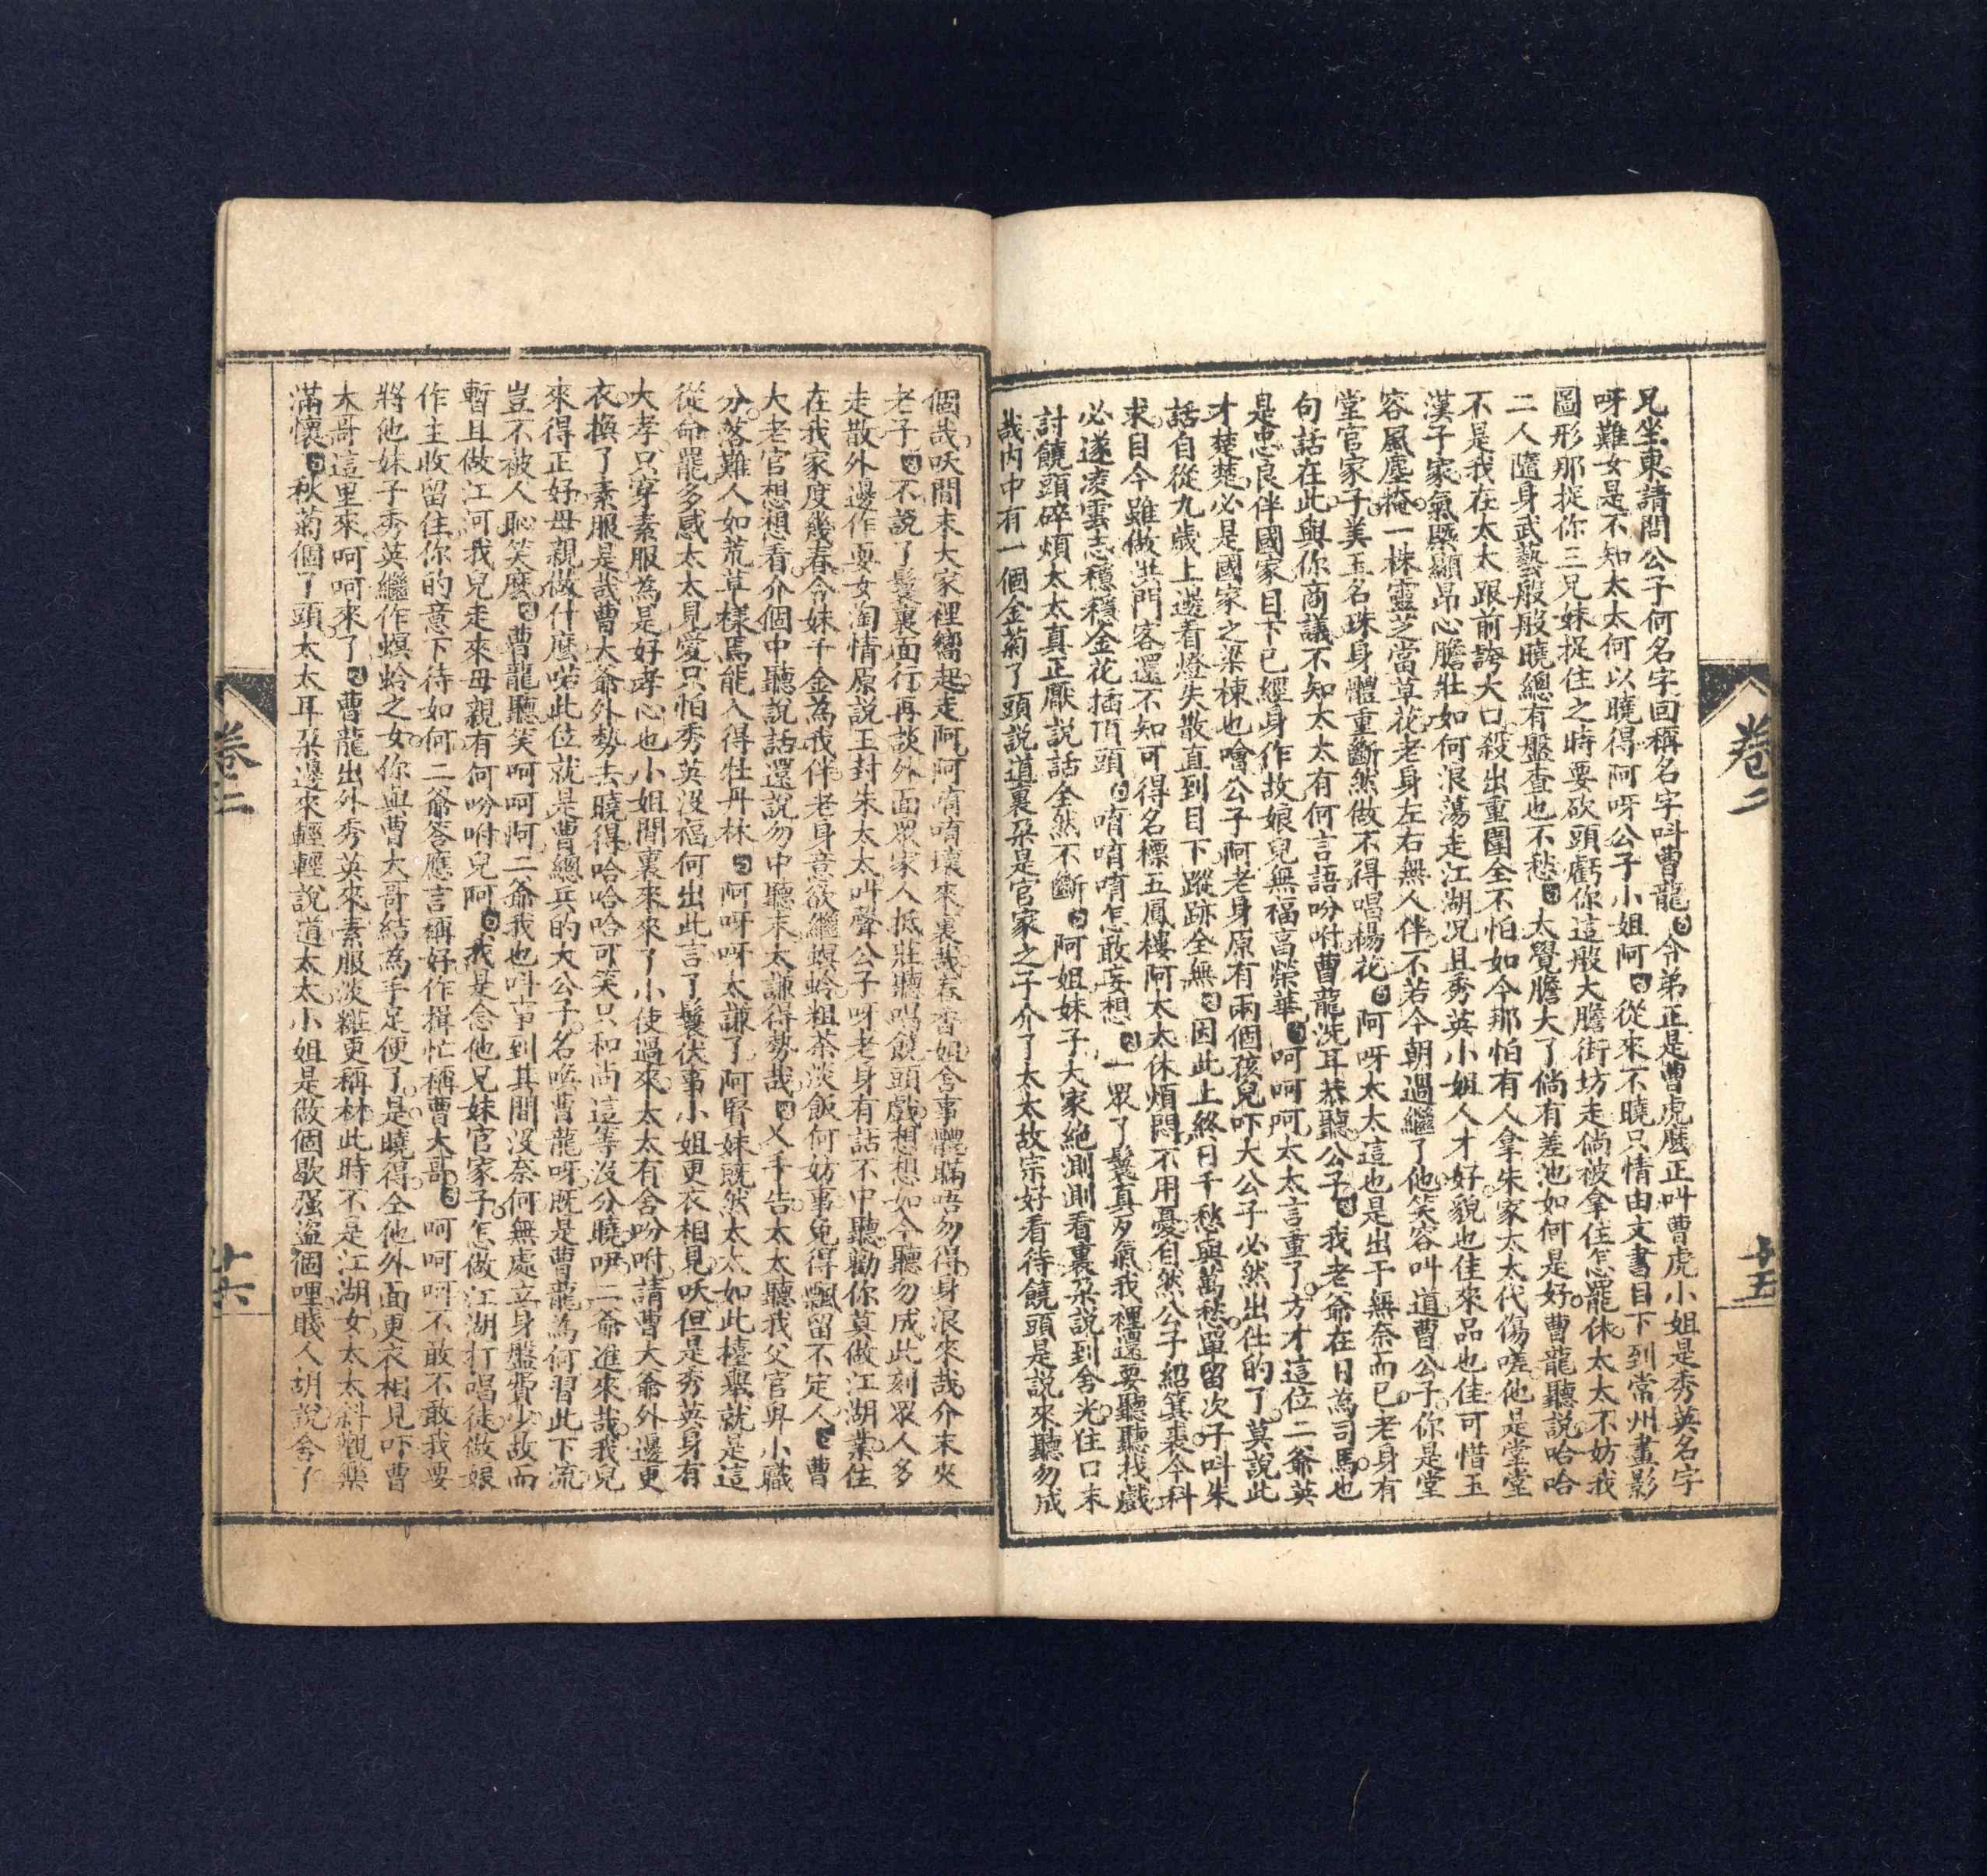 兄坐東請問公子何名字回稱名字呌曹龍令弟正是曹虎麽正叫曹虎小姐是秀英名字
呀難女是不知太太何以曉得阿呀公子小姐阿從來不曉只情由文書目下到常州畫影
圖形那捉你三兄妹捉住之時要砍頭虧你這般大膽街坊走倘被拿住怎罷休太太不妨我
二人隨身武藝般般曉總有盤查也不愁太覺膽大了倘有差池如何是好曹龍聽説哈哈
不是我在太太跟前誇大口殺出重圍全不怕如今那怕有人拿朱家太太代傷嗟他是堂堂
漢子家氣槩顯昂心膽壯如何浪蕩走江湖况且秀英小姐人才好貌也佳來品也佳可惜玉
容風塵掩一株靈芝當草花老身左右無人伴不若今朝過繼了他笑容叫道曹公子你是堂
堂官家子美玉名珠身體重斷然做不得唱楊花阿呀太太這也是出于無奈而已老身有
句話在此與你商議不知太太有何言語吩咐曹龍洗耳恭聽公子我老爺在日為司馬也
是忠良伴國家目下已經身作故娘兒無福富榮華呵呵呵太太言重了方才這位二爺英
才楚楚必是國家之梁棟也噲公子阿老身原有兩個孩兒吓大公子必然出仕的了莫說此
話自從九歲上邊看燈失散直到目下蹤跡全無因此上終日千愁與萬愁單留次子呌朱
求自今雖做出門客還不知可得名標五鳳樓阿太太休煩悶不用憂自然公子紹箕裘今科
必遂凌雲志穩穩金花插頂頭唷唷唷怎敢妄想一眾了鬟真歹氣我裡還要聽聽找戲
討饒頭碎煩太太真正厭說話全然不斷阿姐妹子大家絶測測看裏朶說到舍光住口末
哉内中有一個金菊了頭說道裏朶是官家之子介了太太故宗好看待饒頭是說來聽勿成
卷二
十五
個哉吷間末大家裡嚮起走阿阿唷唷壞來裏哉春香姐舍事體瞞唔勿得身浪來哉介末夾
老子不說了鬟裏面行再談外面眾家人抵莊聽唱饒頭戲想想如今聽勿成此刻眾人多
走散外邊作耍女淘情原說王封朱太太叫聲公子呀老身有話不中聽勸你莫做江湖業住
在我家度幾春令妹千金為我伴老身意欲繼螟蛉粗茶淡飯何妨事免得飄留不定人曹
大老官想想看介個中聽說話還說勿中聽末太謙得勢哉乂手告太太聽我父官卑小職
分落難人如荒草樣焉能入得牡丹林阿呀呀太謙了阿賢妹既然太太如此檯舉就是這
從命罷多感太太見愛只怕秀英没福何出此言了鬟伏事小姐更衣相見吷但是秀英身有
大孝只穿素服為是好孝心也小姐間裏來來了小使過來太太有舍吩咐請曹大爺外邊更
衣換了素服是哉曹大爺外勢去曉得哈哈哈可笑只和尚這等沒分曉吚二爺進來哉我兒
來得正好母親做什麽喏此位就是曹總兵的大公子名喚曹龍呀既是曹龍為何習此下流
豈不被人恥笑麽曹龍聽笑呵呵阿二爺我也呌事到其間没奈何無處立身盤費少故而
暫且做江河我兒走來母親有何吩咐兒阿我是念他兄妹官家子怎做江湖打唱徒做娘
作主收留住你的意下待如何二爺答應言稱好作揖忙稱曹大哥呵呵呵不敢不敢我要
將他妹子秀英繼作螟蛉之女你與曹大哥結為手足便了是曉得仝他外面更衣相見吓曹
大哥這里來呵呵來了曹龍出外秀英來素服淡糚更稱林此時不是江湖女太太斜觀樂
滿懷秋菊個了頭太太耳朶邊來輕輕說道太太小姐是做個歇强盗個哩賤人胡說舍了
卷二
十六